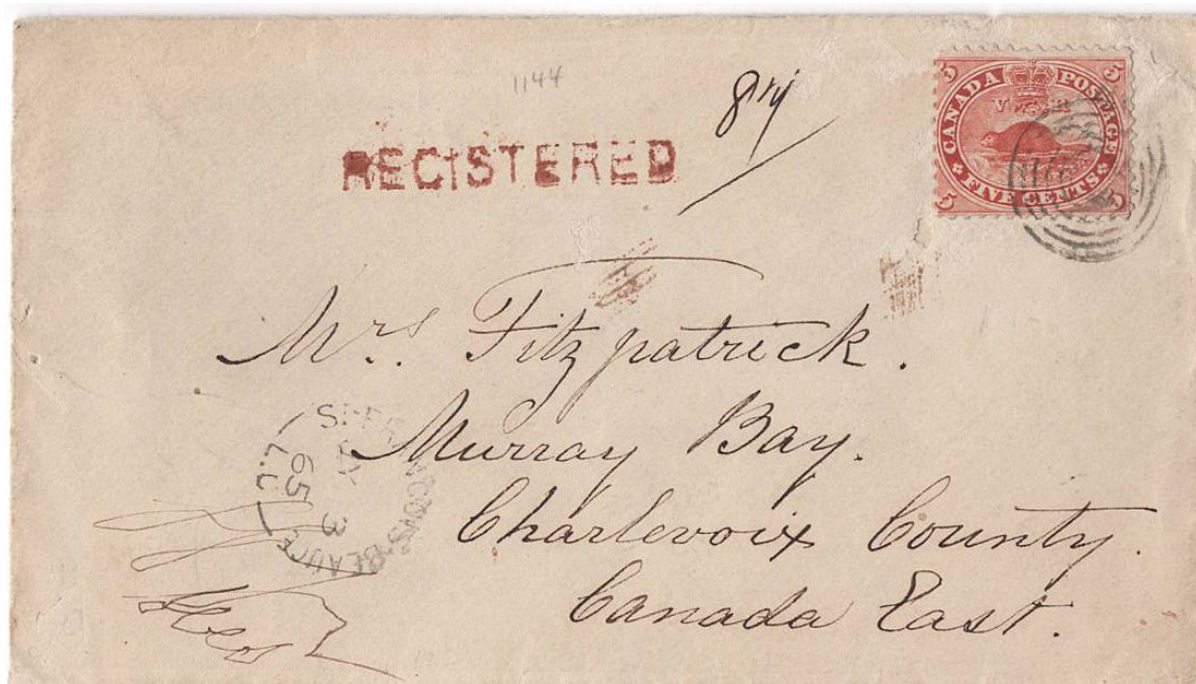 1144
REGISTERED
5 CANADA POSTAGE 5
V R
5 FIVE CENTS 5
Mrs. Fitzpatrick.
Murray Bay.
Charlevoix County.
Canada East.
ST FRANCOIS BEAUCE
3
65
L.C